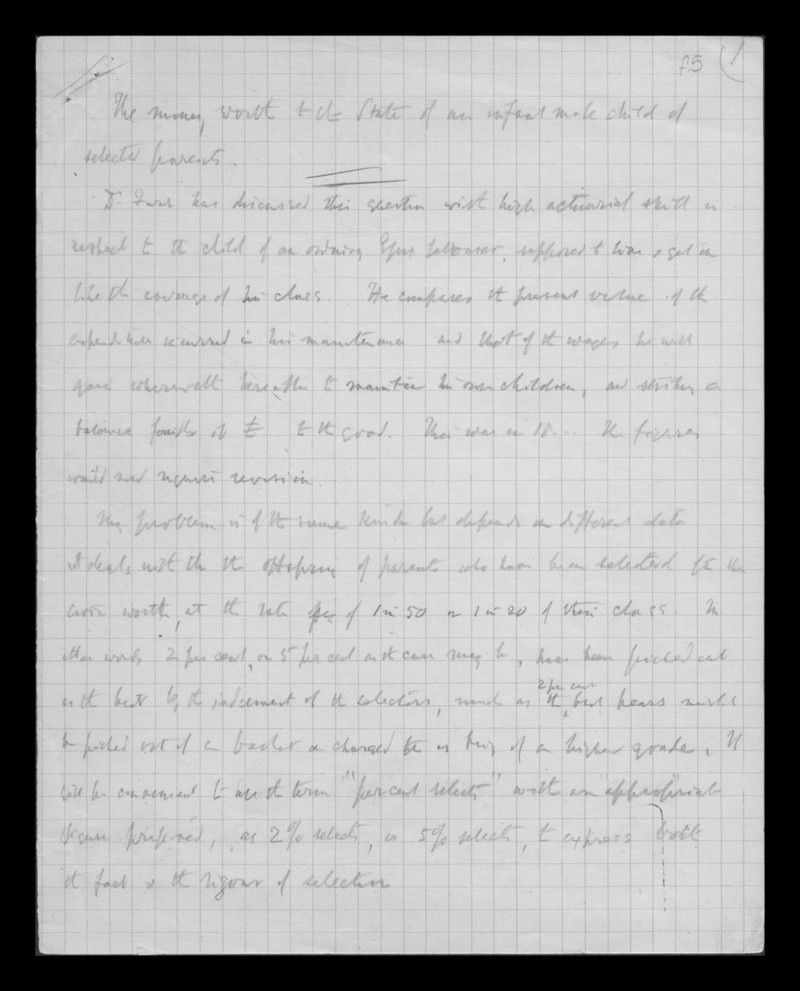 f.5 1
The money worth to the State of an infant male child of
selected parents.
Dr Farr has discussed this question with high actuarial skill in
respect to the child of an ordinary Essex labourer, supposed to live & get on
like the average of his class. He compares the present value of the
expenditure incurred in his maintenance and that of the wages he will
gain wherewith hereafter to maintain his own children, and striking a
balance finds it £ to the good. This was in 18... the figures
would now require revision.
My problem is of the same kind but depends on different data
it deals with the the offspring of parents who have been selected for their
civic worth, at the rate of 1 in 50 or 1 in 20 of their class. In
other words 2 per cent, or 5 per cent as the case may be, have been picked out
as the best by the judgement of the selectors, much as the 2 per cent best pears might
be picked out of a basket & charged for as being of a higher grade. It
will be convenient to use the term "per cent selects" with an appropriate
figure prefixed, as 2% selects, or 5% selects, to express both
the fact & the rigour of selection